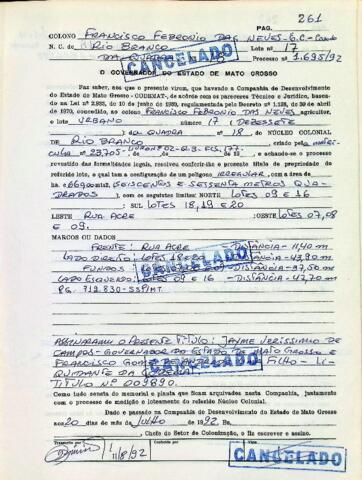 261
PAG.
COLONO FRANCISCO FEBRONIO DAS NEVES - G.C-
N. C. de RIO BRANCO Lote n.º 17
DA QUADRA Nº 18 Processo n.º 1.695/92
CANCELADO
O GOVERNADOR DO ESTADO DE MATO GROSSO
Faz saber, aos que o presente virem, que havendo a Companhia de Desenvolvimento
do Estado de Mato Grosso - CODEMAT, de acôrdo com os pareceres Técnico e Jurídico, basea-
do na Lei n.º 2.935, de 10 de junho de 1969, regulamentada pelo Decreto n.º 1.138, de 30 de abril
de 1970, concedido, ao colono FRANCISCO FEBRONIO DAS NEVES agricultor, o
lote URBANO n.º 17 DEZESSETE
) da QUADRA n.º 18. do NÚCLEO COLONIAL
DE RIO BRANCO criado pela MATRI-
CULA nº 23.705- LIVRO Nº 02-G.3-FLS. 177. e achando-se o processo
revestido das formalidades legais, resolveu conferir-lhe o presente título de propriedade do
referido lote, o qual tem a configuração de um polígono IRREGULAR, com a área de
670
SEISCENTOS E SETENTA METROS QUA-
DRADOS), com os seguintes limites: NORTE LOTES 09 E 16
; SUL LOTES 18, 19 E 20
LESTE RUA ACRE ; OESTE LOTES 07, 08
E 09.
MARCOS OU DADOS
FRENTE: RUA ACRE - DISTÂNCIA - 11,40 m
LADO DIREITO: LOTES 18 E 20 - DISTÂNCIA - 43,90 m
FUNDOS - DISTÂNCIA - 37,50 m
CANCELADO
LADO ESQUERDO: LOTES 09 E 16 - DISTÂNCIA - 42,70 m
PG. 712.830-
ASSINARAM O PRESENTE TÍTULO: JAYME VERISSIMO DE
CAMPOS - GOVERNADOR DO ESTADO DE MATO GROSSO E
FRANCISCO GOMES DE ANDRADE LIMA FILHO - LI-
CANCELADO
QUIDANTE DA CODEMAT
TÍTULO Nº 009890.
Como tudo consta do memorial e planta que ficam arquivados nesta Companhia, juntamente
com o processo de medição e loteamento do referido Núcleo Colonial.
Dado e passado na Companhia de Desenvolvimento do Estado de Mato Grosso
aos 20 dias do mês de JULHO de 1992. Eu,
Chefe do Setor de Colonização, o fiz escrever e assino.
Transcrito por Conferido por Visto
11/8/92
CANCELADO